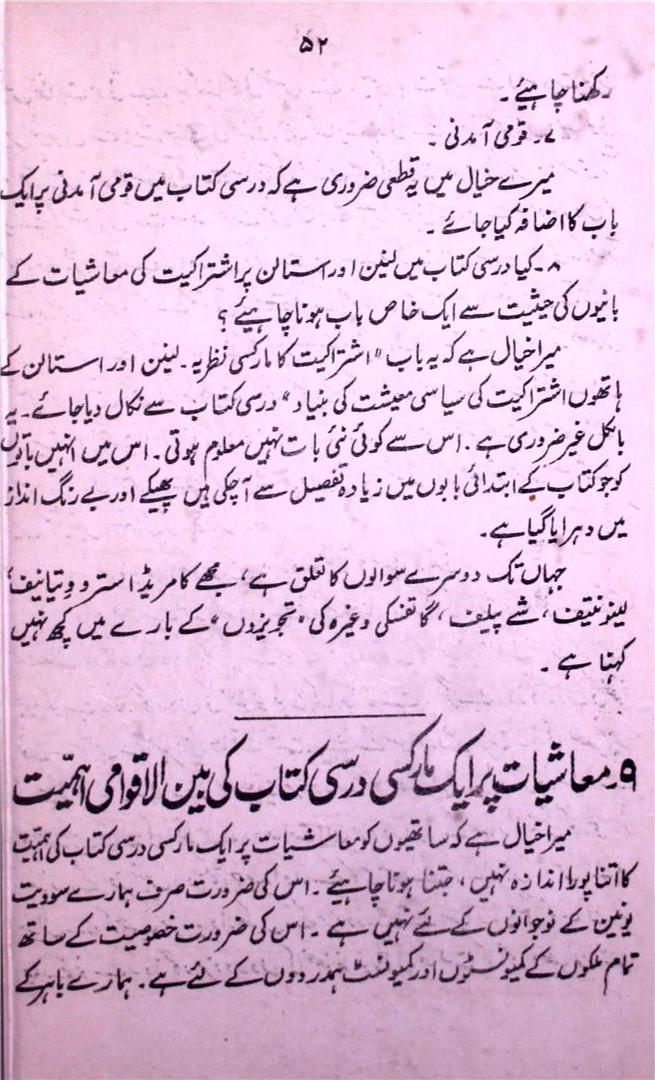 ۵۲
رکھنا چاہیئے۔
۷۔ قومی آمدنی۔
میرے خیال میں یہ قطعی ضروری ہے کہ درسی کتاب میں قومی آمدنی پر ایک
باب کا اضافہ کیا جائے۔
۸۔ کیا درسی کتاب میں لینن اور استالن پر اشتراکیت کی معاشیات کے
بانیوں کی حیثیت سے ایک خاص باب ہونا چاہیئے؟
میرا خیال ہے کہ یہ باب "اشتراکیت کا مارکسی نظریہ۔ لینن اور استالن کے
ہاتھوں اشتراکیت کی سیاسی معیشت کی بنیاد" درسی کتاب سے نکال دیا جائے۔ یہ
بالکل غیر ضروری ہے۔ اس سے کوئی نئی بات نہیں معلوم ہوتی۔ اس میں انہیں باتوں
کو جو کتاب کے ابتدائی بابوں میں زیادہ تفصیل سے آچکی ہیں پھیکے اور بے رنگ انداز
میں دہرایا گیا ہے۔
جہاں تک دوسرے سوالوں کا تعلق ہے، مجھے کامریڈ استرووتیانیف،
لیونتیف، شے پلیف، گاتفسکی وغیرہ کی "تجویزوں" کے بارے میں کچھ نہیں
کہنا ہے۔
۹۔ معاشیات پر ایک مارکسی درسی کتاب کی بین الاقوامی اہمیّت
میرا خیال ہے کہ ساتھیوں کو معاشیات پر ایک مارکسی درسی کتاب کی اہمیّت
کا اتنا پورا اندازہ نہیں، جتنا ہونا چاہیئے۔ اس کی ضرورت صرف ہمارے سوویت
یونین کے نوجوانوں کے لئے نہیں ہے۔ اس کی ضرورت خصوصیت کے ساتھ
تمام ملکوں کے کمیونسٹوں اور کمیونسٹ ہمدردوں کے لئے ہے۔ ہمارے باہر کے